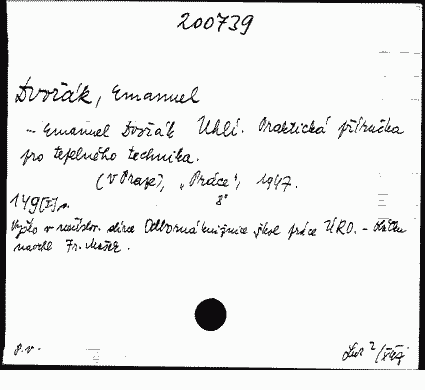 200739
Dvořák, Emanuel
- Emanuel Dvořák Uhlí. Praktická příručka
pro tepelného technika.
(V Praze), „Práce“, 1947.
8°
149 [I] s.
Vyšlo v nečíslov. sbírce Odborná knižnice škol práce ÚRO. - Obálku
navrhl Fr.
p. v.